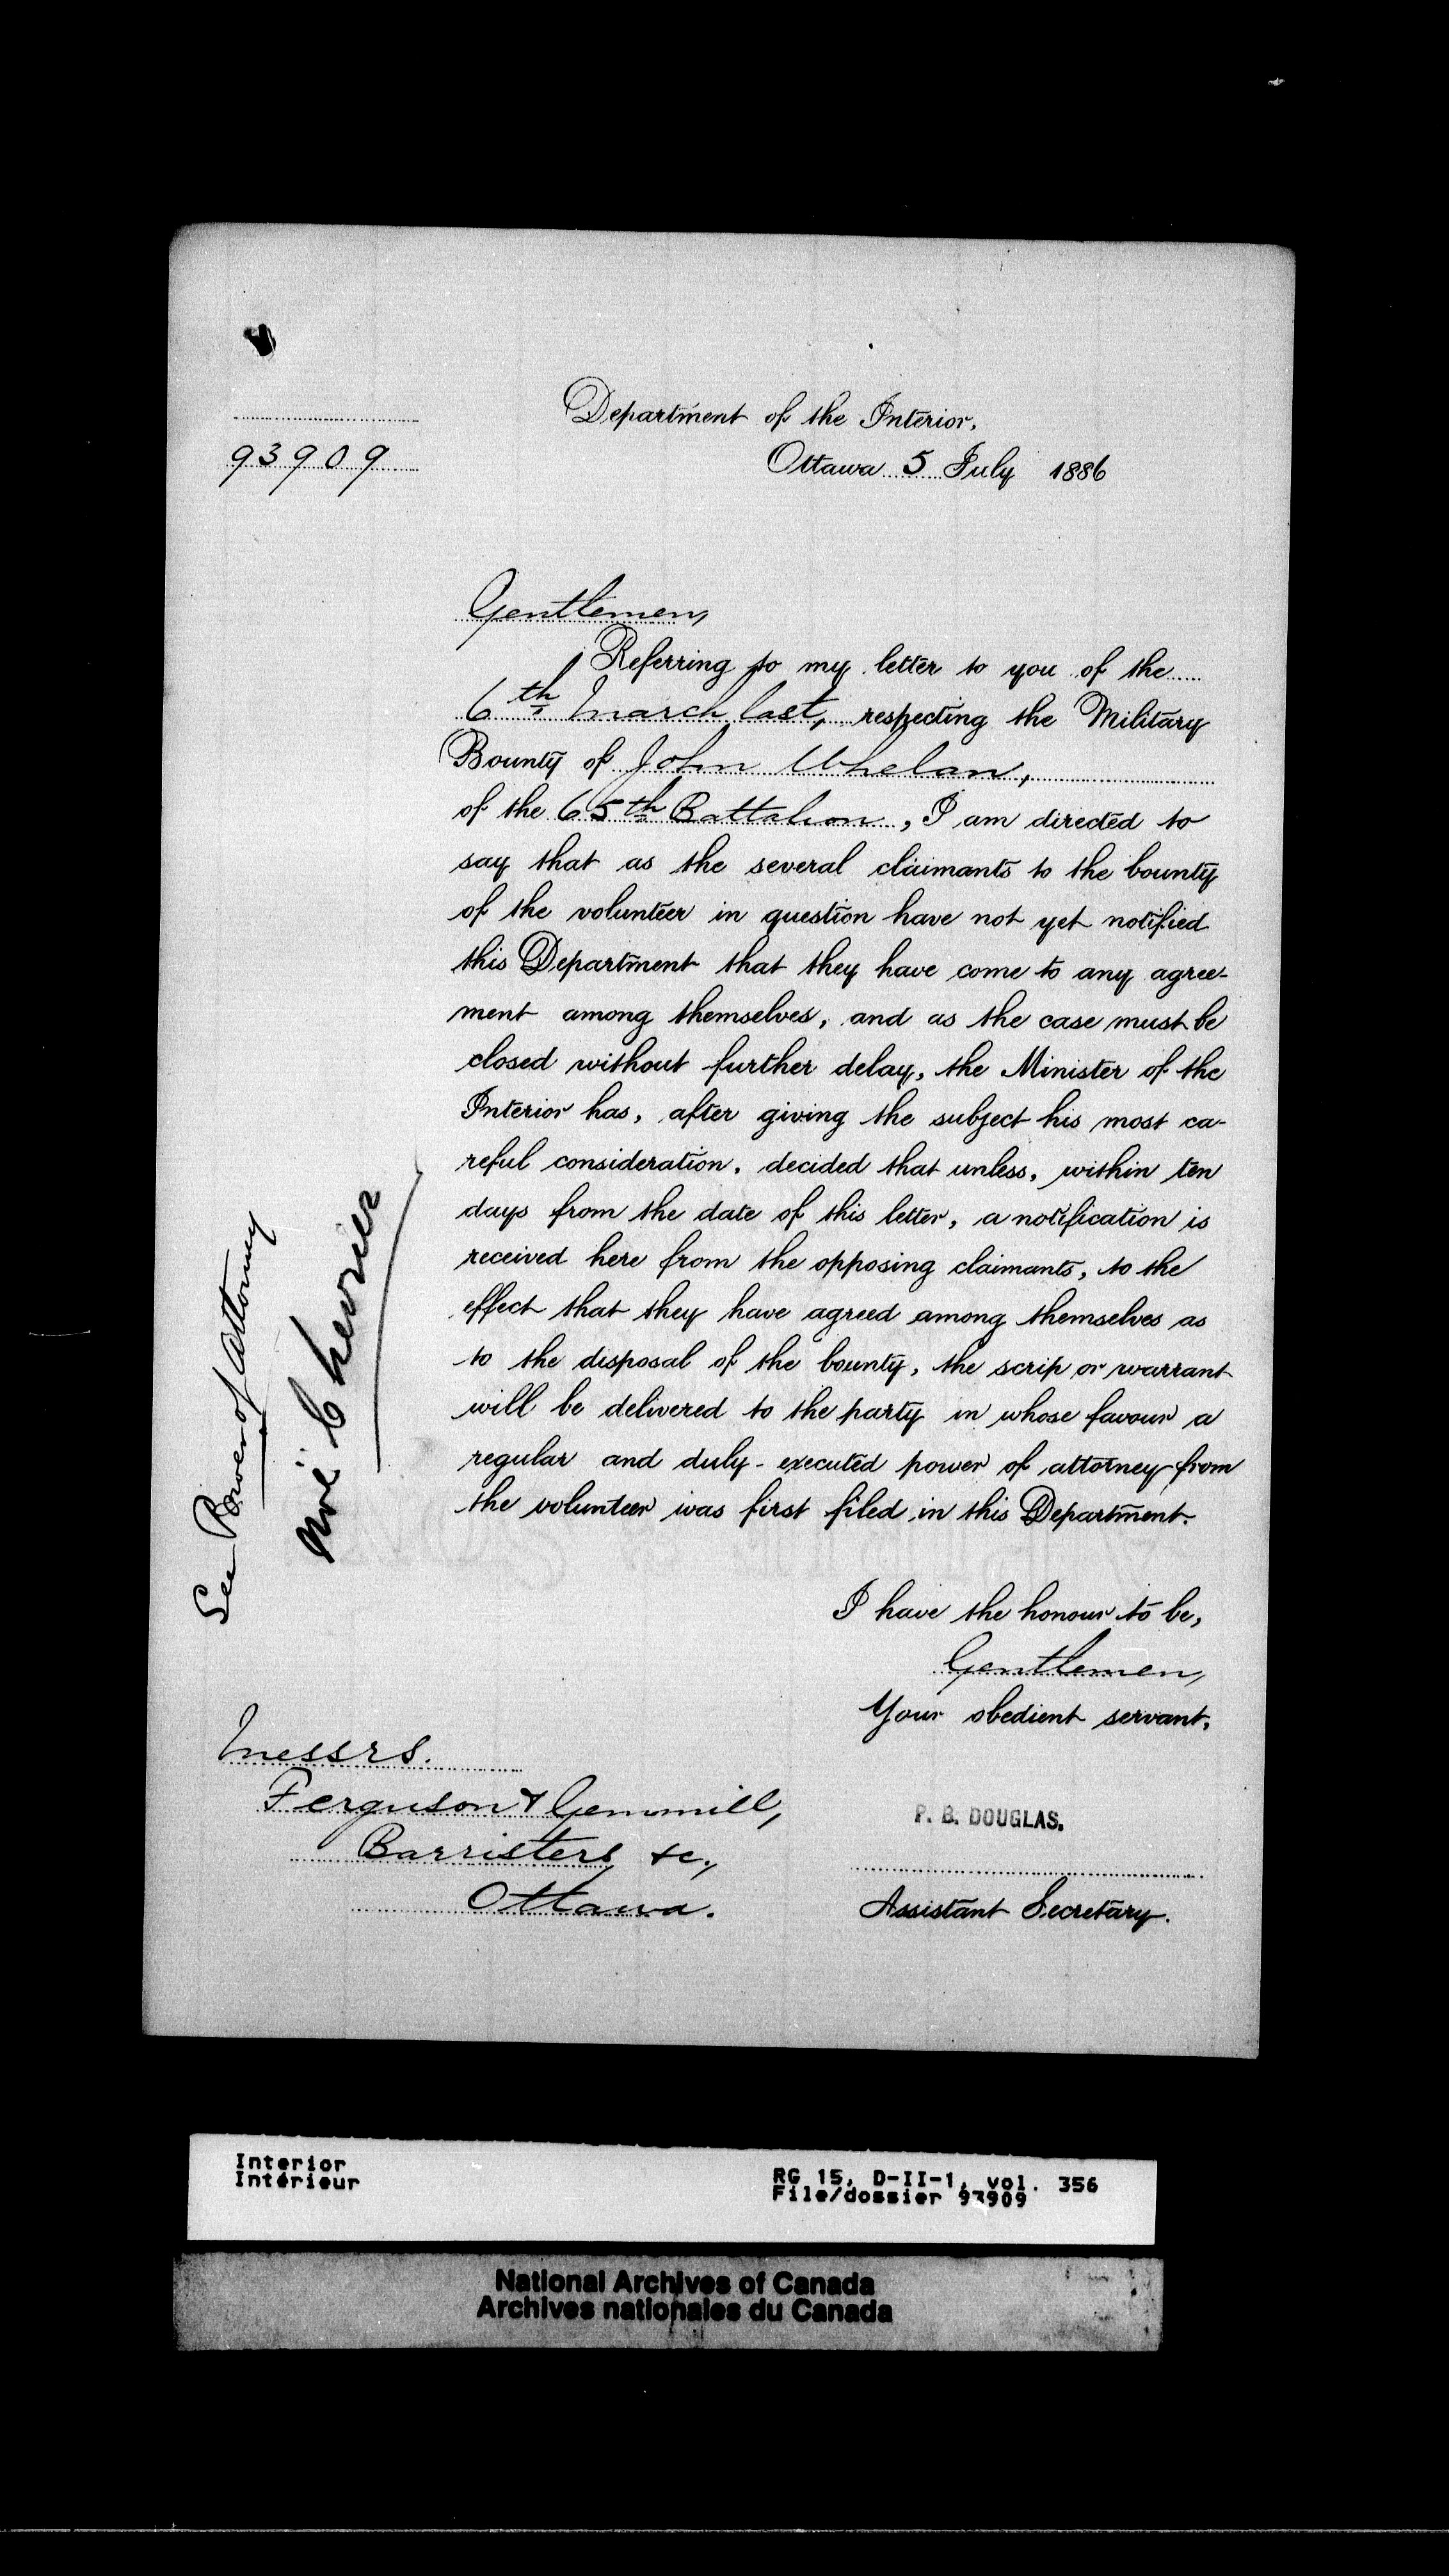 Department of the Interior,
93909
Ottawa 5 July 1886
Gentlemen,
Referring to my letter to you of the
6th March last, respecting the Military
Bounty of John Whelan,
of the 65th Battalion, I am directed to
say that as the several claimants to the bounty
of the volunteer in question have not yet notified
this Department that they have come to any agree-
ment among themselves, and as the case must be
closed without further delay, the Minister of the
Interior has, after giving the subject his most ca-
reful consideration, decided that unless, within ten
days from the date of this letter, a notification is
received here from the opposing claimants, to the
effect that they have agreed among themselves as
to the disposal of the bounty, the scrip or warrant
will be delivered to the party in whose favour a
regular and duly-executed power of attorney from
the volunteer was first filed in this Department.
See Power of Attorney
Noë Chevrier
I have the honour to be,
Gentlemen,
Your obedient servant,
Messrs.
Ferguson & Gemmill,
Barristers &c.,
Ottawa.
P. B. DOUGLAS.
Assistant Secretary.
Interior
Intérieur
RG 15, D-II-1, vol. 356
File/dossier 93909
National Archives of Canada
Archives nationales du Canada